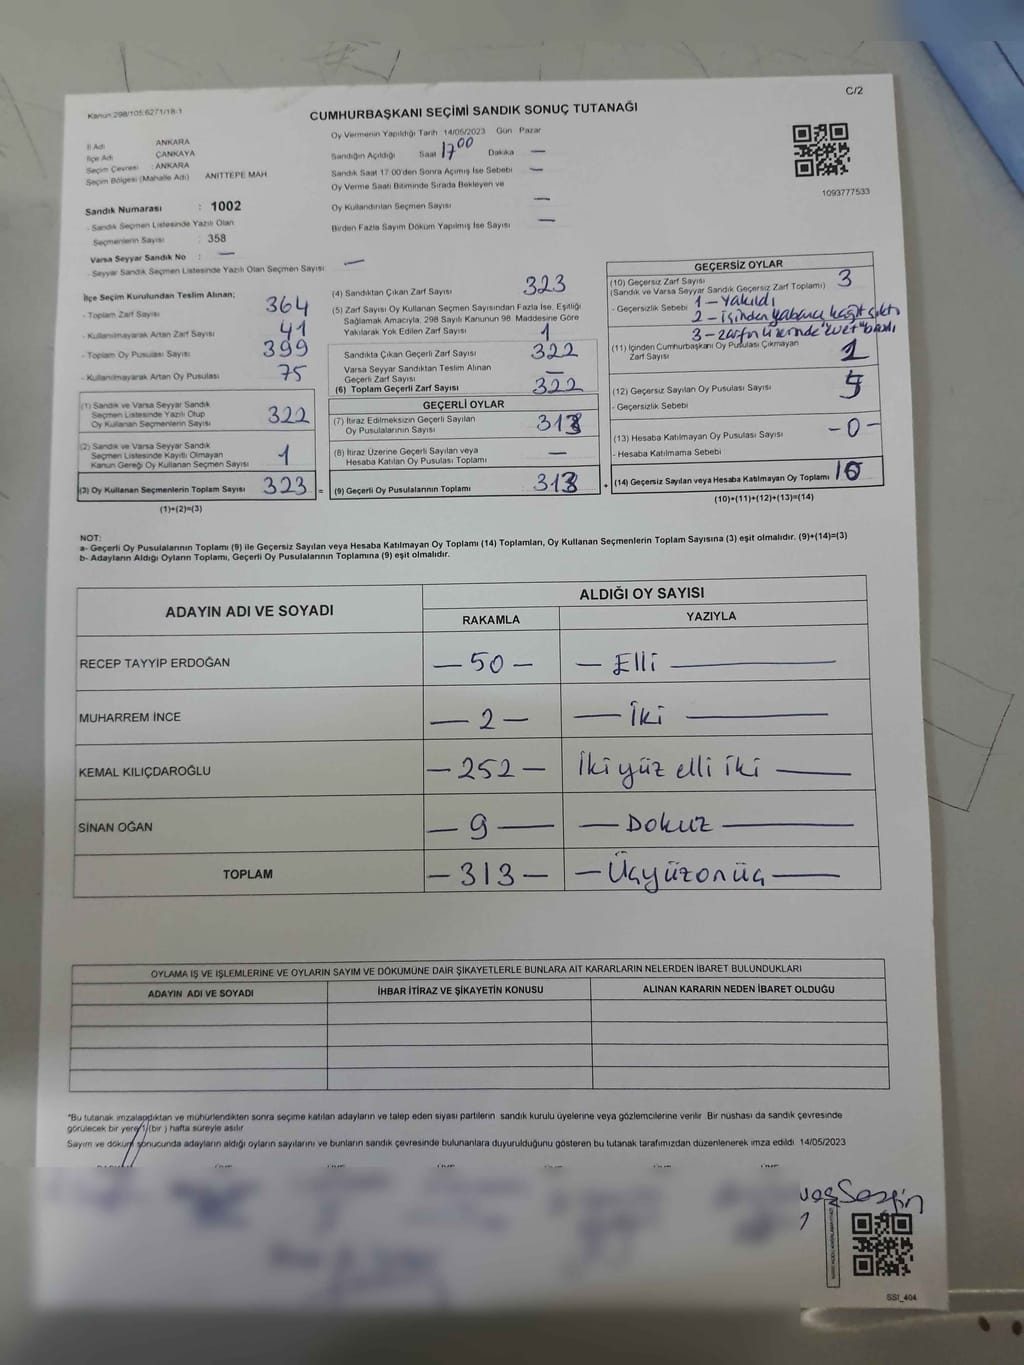 C/2
Kanun:298/105:6271/18-1
CUMHURBAŞKANI SEÇİMİ SANDIK SONUÇ TUTANAĞI
İl Adı ANKARA
İlçe Adı ÇANKAYA
Seçim Çevresi : ANKARA
Seçim Bölgesi (Mahalle Adı) ANITTEPE MAH
Sandık Numarası : 1002
- Sandık Seçmen Listesinde Yazılı Olan
Seçmenlerin Sayısı : 358
Varsa Seyyar Sandık No : —
- Seyyar Sandık Seçmen Listesinde Yazılı Olan Seçmen Sayısı —
Oy Vermenin Yapıldığı Tarih 14/05/2023 Gün Pazar
Sandığın Açıldığı Saat 17 00 Dakika —
Sandık Saat 17 00'den Sonra Açımış İse Sebebi —
Oy Verme Saati Bitiminde Sırada Bekleyen ve
Oy Kullandırılan Seçmen Sayısı —
Birden Fazla Sayım Döküm Yapılmış İse Sayısı —
1093777533
İlçe Seçim Kurulundan Teslim Alınan;
- Toplam Zarf Sayısı 364
- Kullanılmayarak Artan Zarf Sayısı 41
- Toplam Oy Pusulası Sayısı 399
- Kullanılmayarak Artan Oy Pusulası 75
(1) Sandık ve Varsa Seyyar Sandık
Seçmen Listesinde Yazılı Olup
Oy Kullanan Seçmenlerin Sayısı 322
(2) Sandık ve Varsa Seyyar Sandık
Seçmen Listesinde Kayıtlı Olmayan
Kanun Gereği Oy Kullanan Seçmen Sayısı 1
(3) Oy Kullanan Seçmenlerin Toplam Sayısı 323 =
(1)+(2)=(3)
(4) Sandıktan Çıkan Zarf Sayısı 323
(5) Zarf Sayısı Oy Kullanan Seçmen Sayısından Fazla İse, Eşitliği
Sağlamak Amacıyla, 298 Sayılı Kanunun 98. Maddesine Göre
Yakılarak Yok Edilen Zarf Sayısı 1
Sandıkta Çıkan Geçerli Zarf Sayısı 322
Varsa Seyyar Sandıktan Teslim Alınan
Geçerli Zarf Sayısı —
(6) Toplam Geçerli Zarf Sayısı 322
GEÇERLİ OYLAR
(7) İtiraz Edilmeksizin Geçerli Sayılan
Oy Pusulalarının Sayısı 313
(8) İtiraz Üzerine Geçerli Sayılan veya
Hesaba Katılan Oy Pusulası Toplamı —
(9) Geçerli Oy Pusulalarının Toplamı 313 +
GEÇERSİZ OYLAR
(10) Geçersiz Zarf Sayısı 3
(Sandık ve Varsa Seyyar Sandık Geçersiz Zarf Toplamı)
- Geçersizlik Sebebi 1 - Yakıldı
2 - içinden yabancı kağıt çıktı
3 - zarfın üzerinde "evet" basılı
(11) İçinden Cumhurbaşkanı Oy Pusulası Çıkmayan
Zarf Sayısı
(12) Geçersiz Sayılan Oy Pusulası Sayısı
- Geçersizlik Sebebi
(13) Hesaba Katılmayan Oy Pusulası Sayısı - 0 -
- Hesaba Katılmama Sebebi
(14) Geçersiz Sayılan veya Hesaba Katılmayan Oy Toplamı 10
(10)+(11)+(12)+(13)=(14)
NOT:
a- Geçerli Oy Pusulalarının Toplamı (9) ile Geçersiz Sayılan veya Hesaba Katılmayan Oy Toplamı (14) Toplamları, Oy Kullanan Seçmenlerin Toplam Sayısına (3) eşit olmalıdır. (9)+(14)=(3)
b- Adayların Aldığı Oyların Toplamı, Geçerli Oy Pusulalarının Toplamına (9) eşit olmalıdır.
ADAYIN ADI VE SOYADI ALDIĞI OY SAYISI
RAKAMLA YAZIYLA
RECEP TAYYİP ERDOĞAN — 50 — — Elli —
MUHARREM İNCE — 2 — — İki —
KEMAL KILIÇDAROĞLU — 252 — İki yüz elli iki —
SİNAN OĞAN — 9 — — Dokuz —
TOPLAM — 313 — — Üçyüzonüç —
OYLAMA İŞ VE İŞLEMLERİNE VE OYLARIN SAYIM VE DÖKÜMÜNE DAİR ŞİKAYETLERLE BUNLARA AİT KARARLARIN NELERDEN İBARET BULUNDUKLARI
ADAYIN ADI VE SOYADI İHBAR İTİRAZ VE ŞİKAYETİN KONUSU ALINAN KARARIN NEDEN İBARET OLDUĞU
*Bu tutanak imzalandıktan ve mühürlendikten sonra seçime katılan adayların ve talep eden siyasi partilerin sandık kurulu üyelerine veya gözlemcilerine verilir. Bir nüshası da sandık çevresinde
görülecek bir yere 1 (bir ) hafta süreyle asılır
Sayım ve döküm sonucunda adayların aldığı oyların sayılarını ve bunların sandık çevresinde bulunanlara duyurulduğunu gösteren bu tutanak tarafımızdan düzenlenerek imza edildi. 14/05/2023
Sezgin
SSI_404